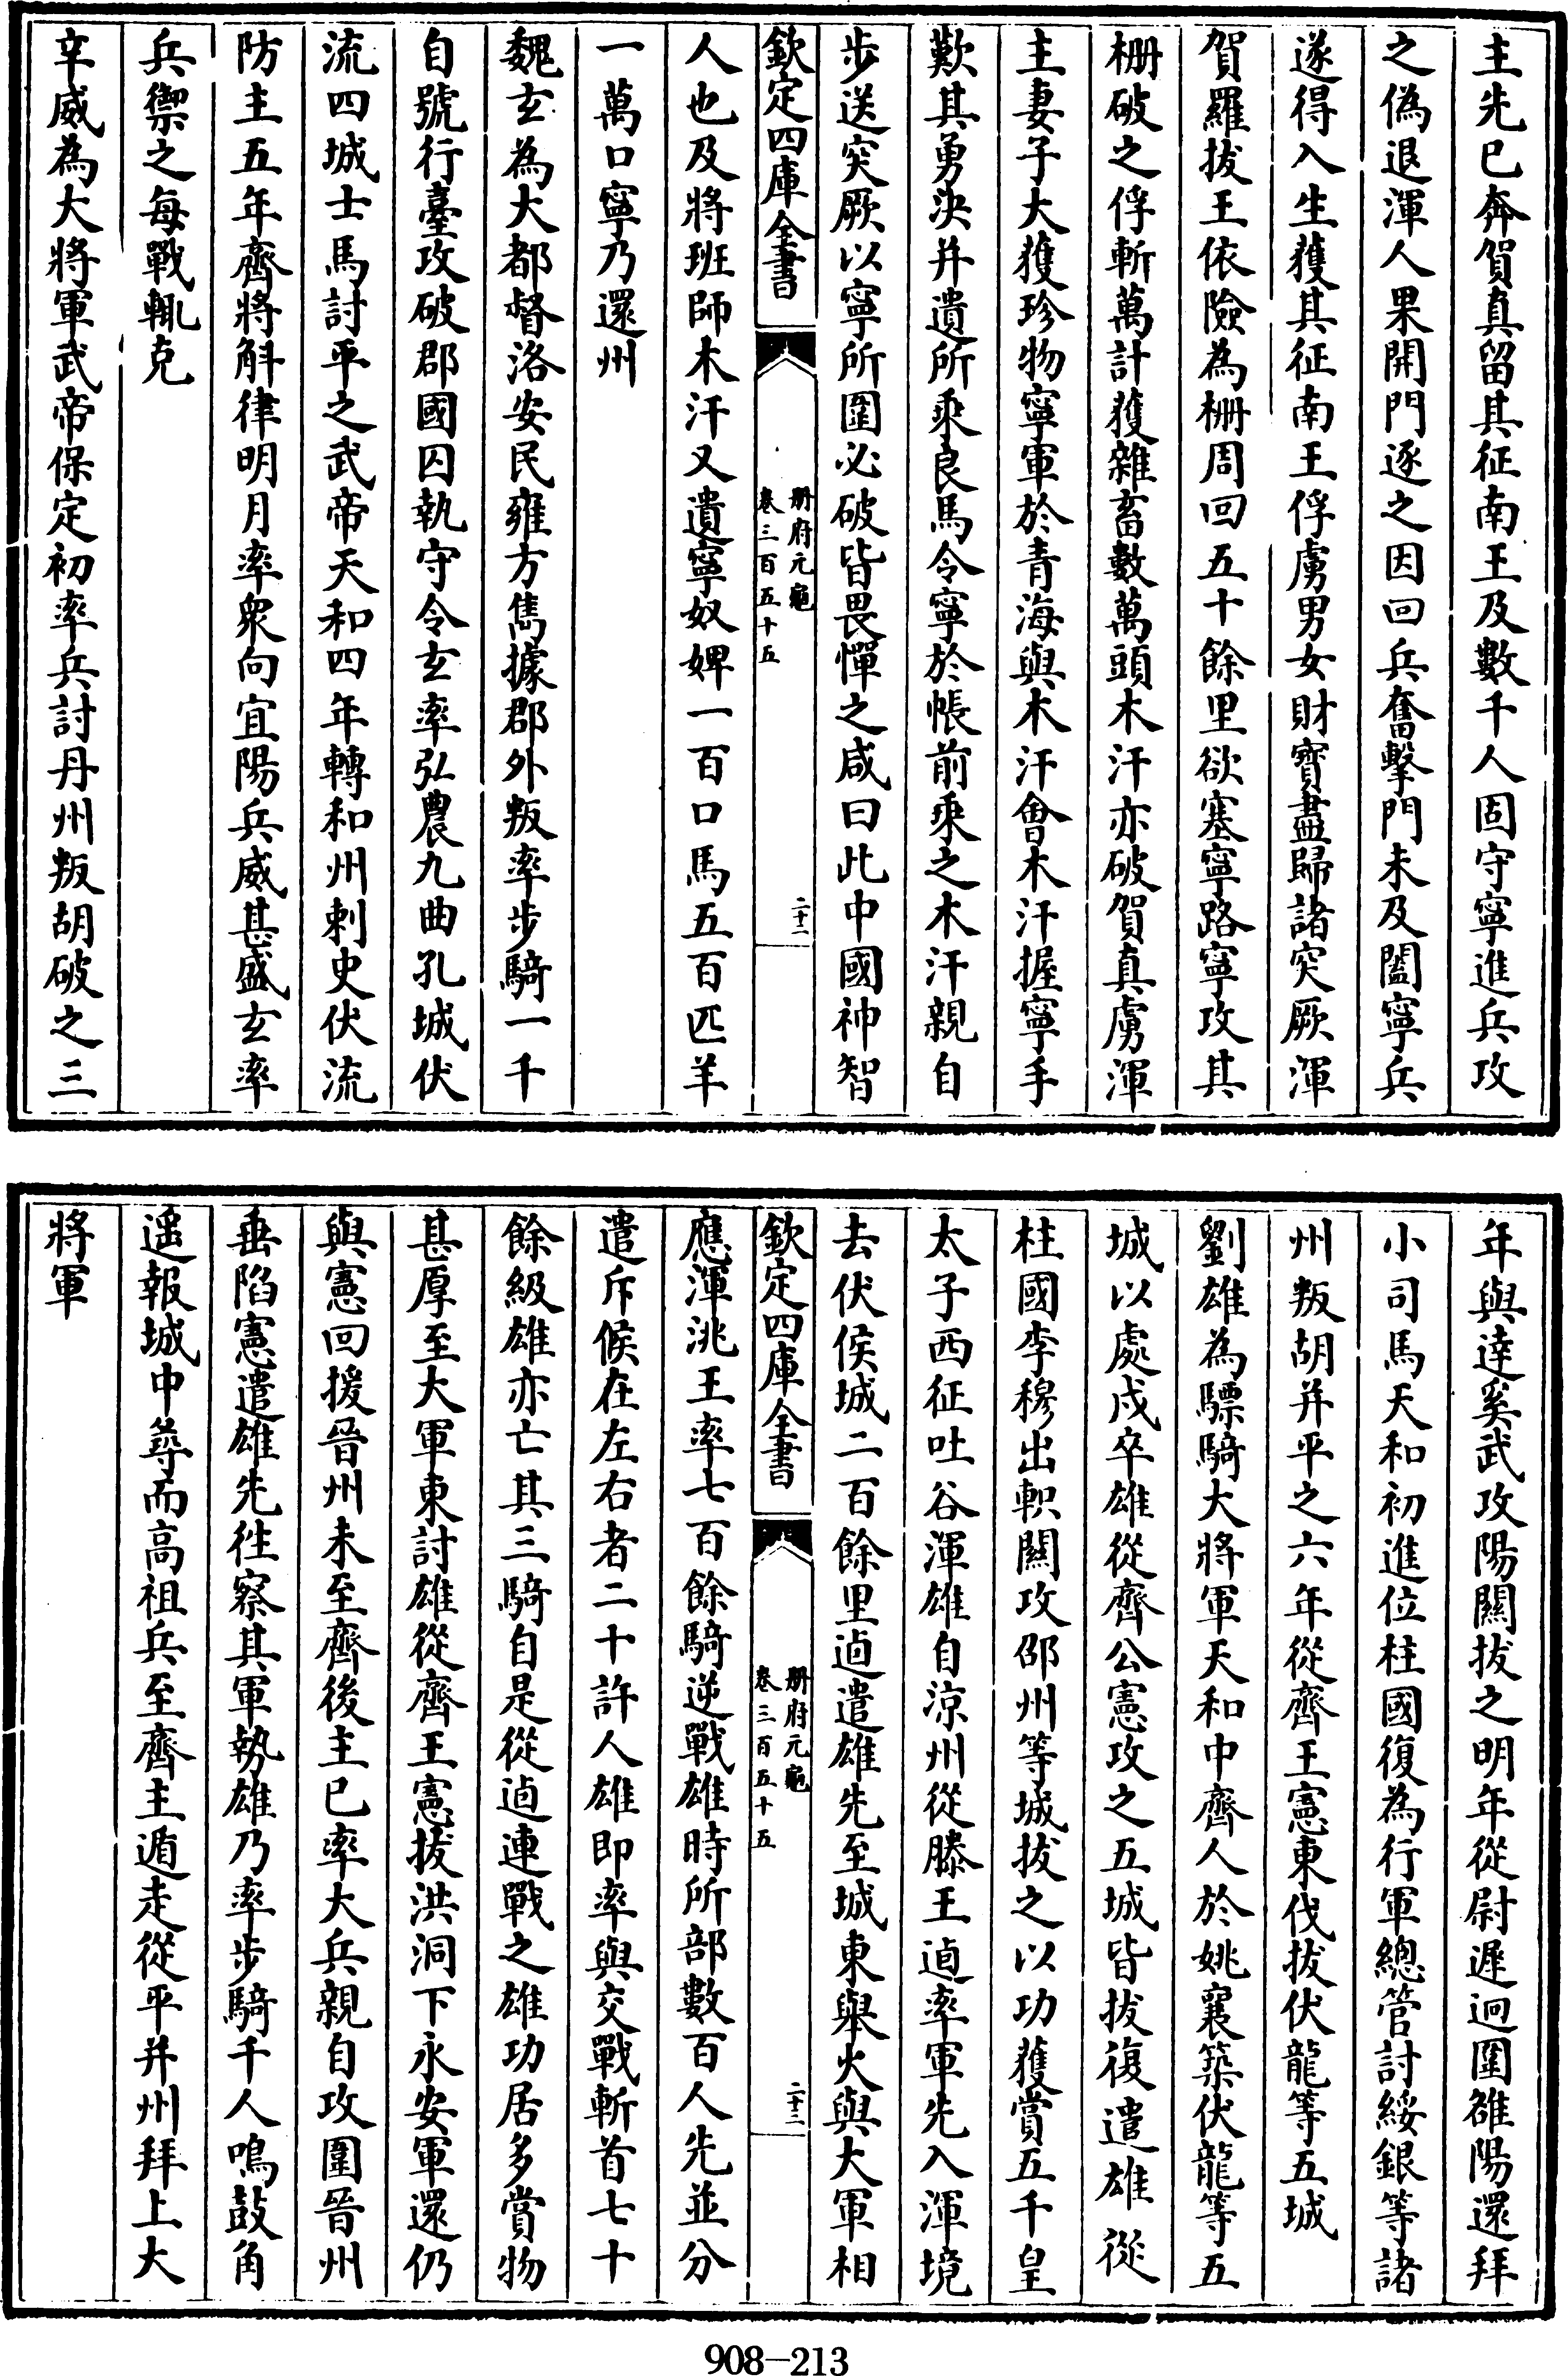 主先已奔賀真留其征南王及數千人固守寧進兵攻
之偽退渾人果開門逐之因回兵奮擊門未及闔寧兵
遂得入生獲其征南王俘虜男女財寶盡歸諸突厥渾
賀羅拔王依險為柵周回五十餘里欲塞寧路寧攻其
柵破之俘斬萬計獲雜畜數萬頭木汗亦破賀真虜渾
主妻子大獲珍物寧軍於青海與木汗會木汗握寧手
歎其勇決并遺所乘良馬令寧於帳前乘之木汗親自
步送突厥以寧所圍必破皆畏憚之咸曰此中國神智
欽定四庫全書
冊府元龜
卷三百五十五
二十二
人也及將班師木汗又遺寧奴婢一百口馬五百匹羊
一萬口寧乃還州
魏玄為大都督洛安民雍方雋據郡外叛率步騎一千
自號行臺攻破郡國囚執守令玄率弘農九曲孔城伏
流四城士馬討平之武帝天和四年轉和州刺史伏流
防主五年齊將斛律明月率眾向宜陽兵威甚盛玄率
兵禦之每戰輒克
辛威為大將軍武帝保定初率兵討丹州叛胡破之三
年與達奚武攻陽關拔之明年從尉遲迥圍雒陽還拜
小司馬天和初進位柱國復為行軍總管討綏銀等諸
州叛胡并平之六年從齊王憲東伐拔伏龍等五城
劉雄為驃騎大將軍天和中齊人於姚襄築伏龍等五
城以處戍卒雄從齊公憲攻之五城皆拔復遣雄從
柱國李穆出軹關攻邵州等城拔之以功獲賞五千皇
太子西征吐谷渾雄自涼州從滕王逌率軍先入渾境
去伏侯城二百餘里逌遣雄先至城東舉火與大軍相
欽定四庫全書
冊府元龜
卷三百五十五
二十三
應渾洮王率七百餘騎逆戰雄時所部數百人先並分
遣斥候在左右者二十許人雄即率與交戰斬首七十
餘級雄亦亡其三騎自是從逌連戰之雄功居多賞物
甚厚至大軍東討雄從齊王憲拔洪洞下永安軍還仍
與憲回援晉州未至齊後主已率大兵親自攻圍晉州
垂陷憲遣雄先往察其軍勢雄乃率步騎千人鳴鼓角
遥報城中尋而高祖兵至齊主遁走從平并州拜上大
將軍
908-213